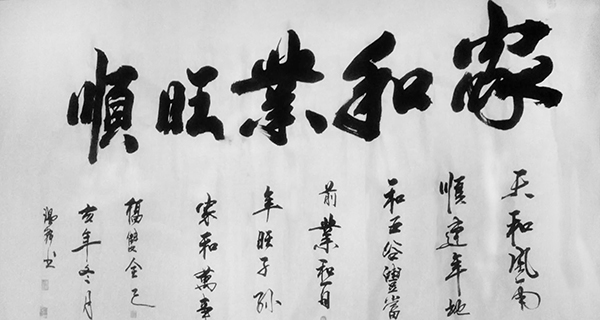 家和業旺順
天和風雨
順連年地
和五谷豐當
前業和百
年旺子孫
家和萬事
福雙全己
亥年冬月
書